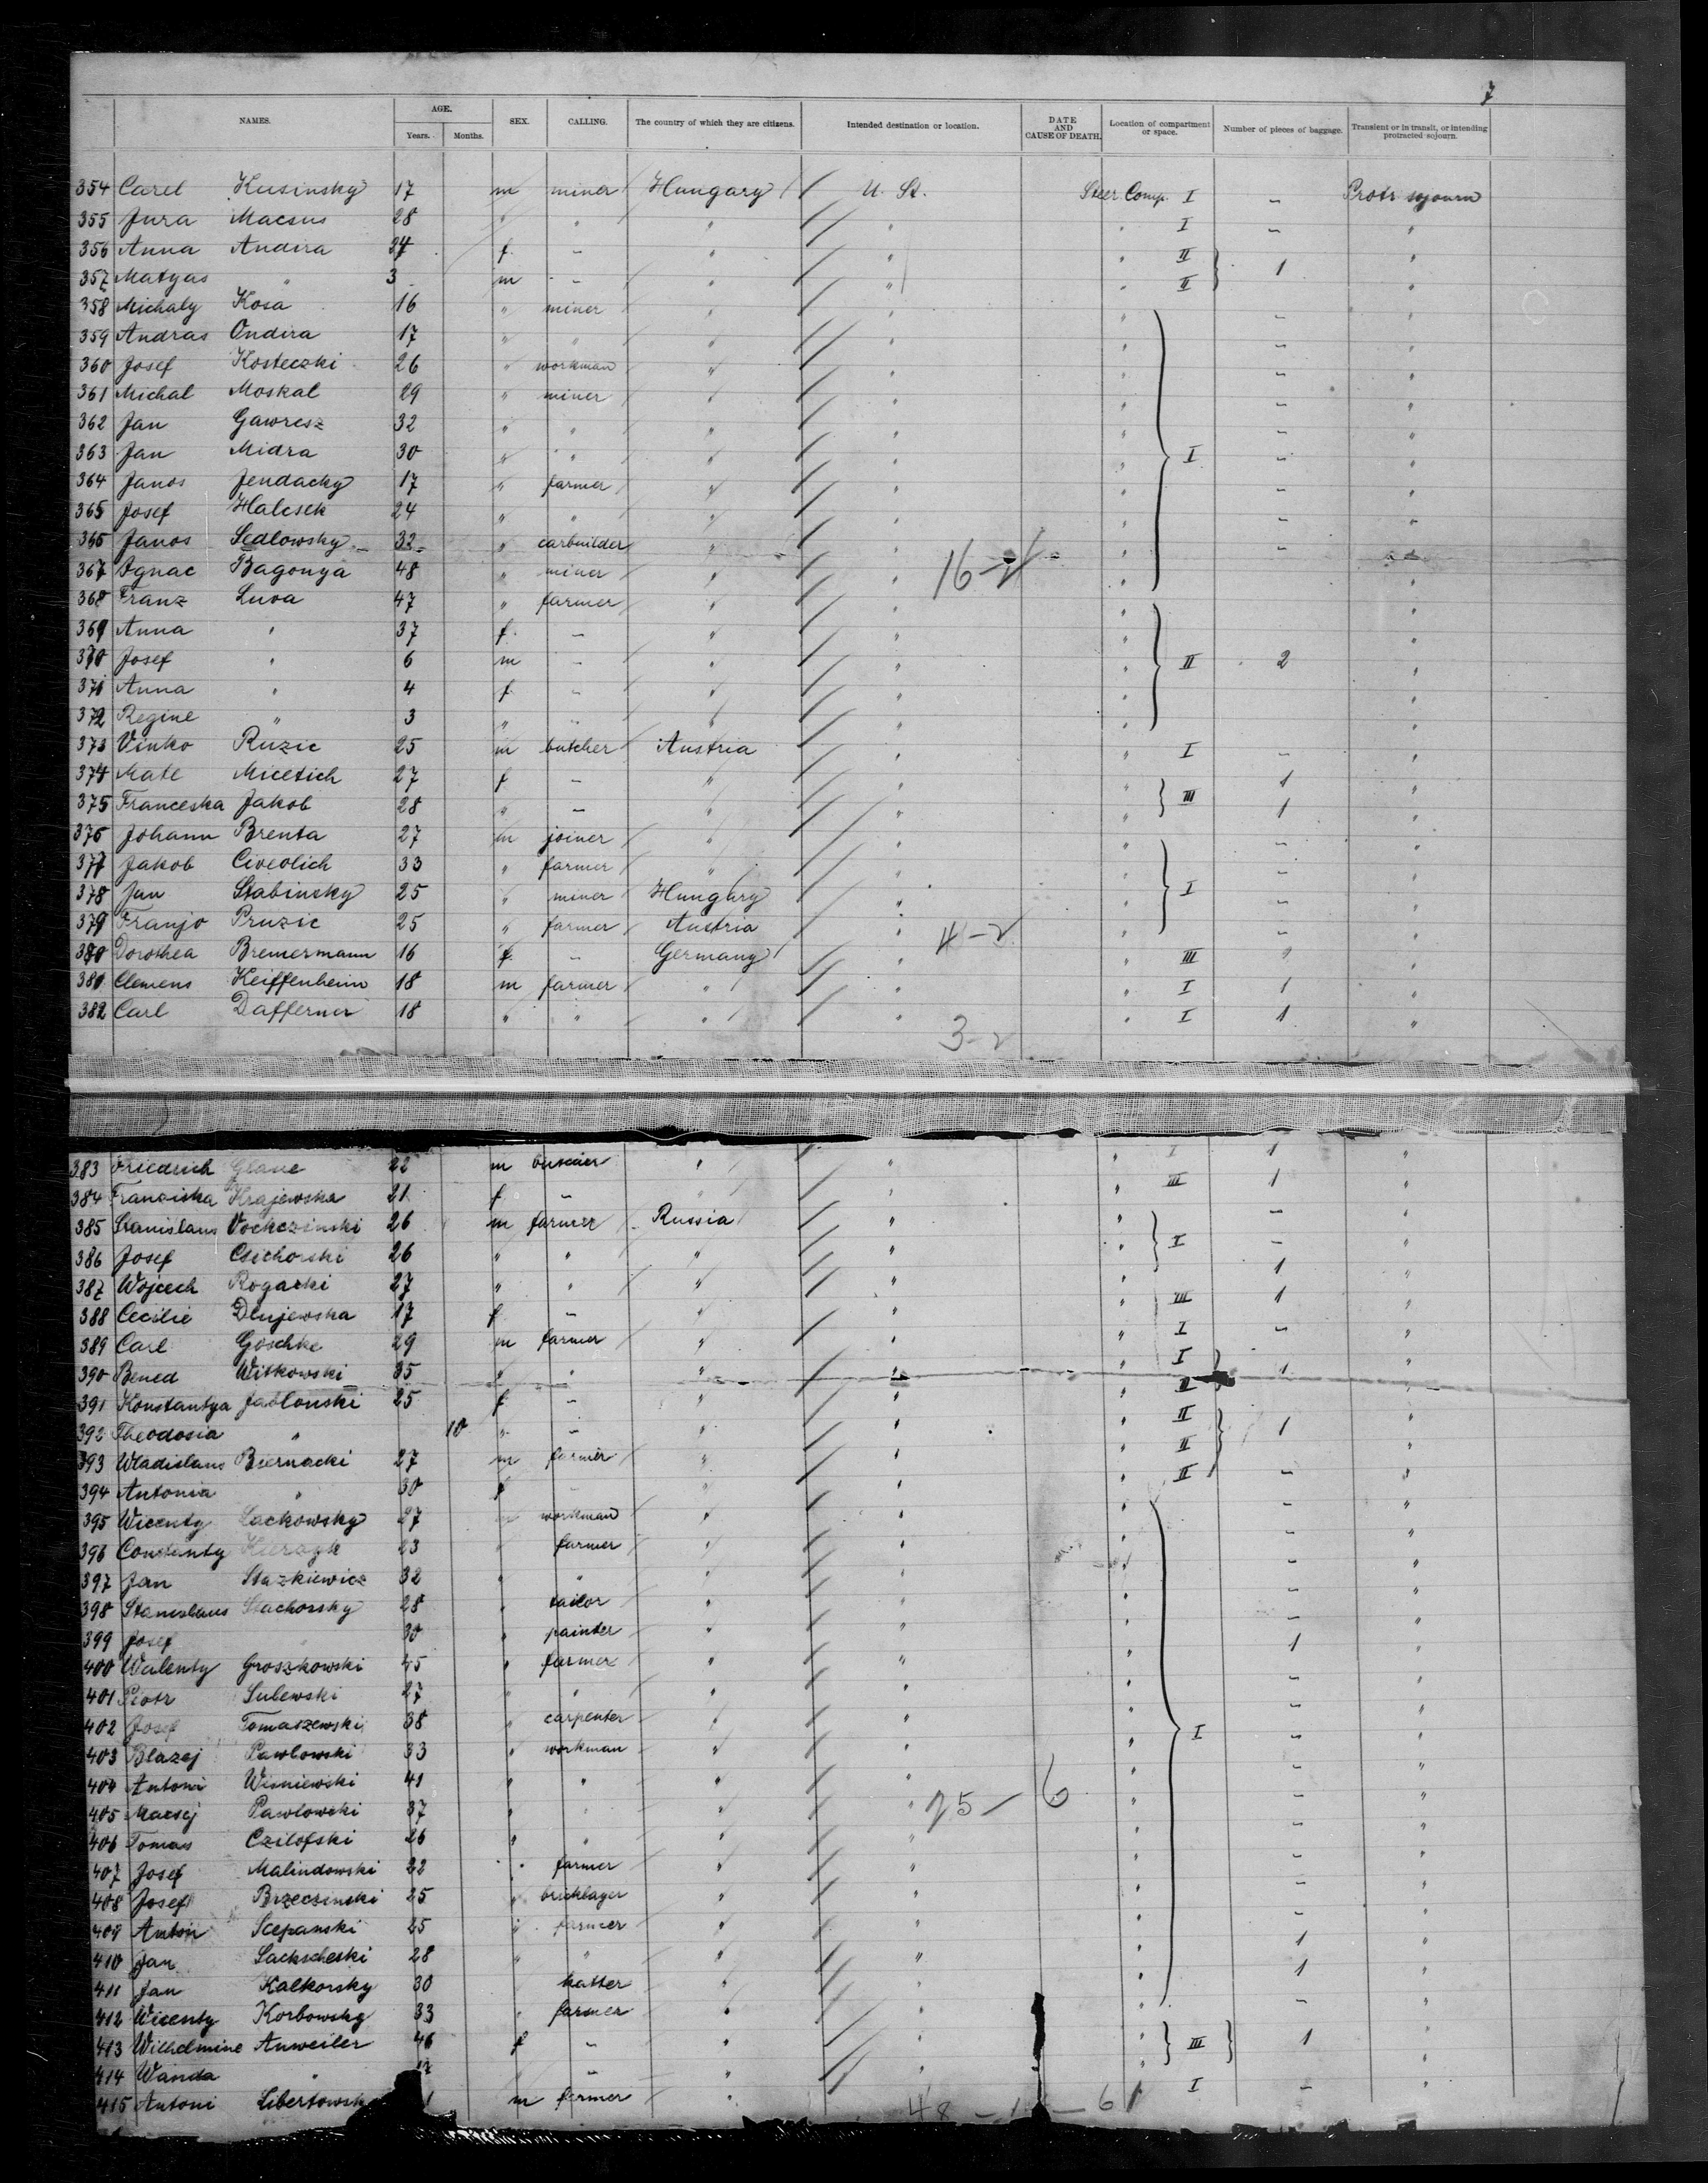 7
NAMES. AGE. Years. Months. SEX. CALLING. The country of which they are citizens. Intended destination or location. DATE AND CAUSE OF DEATH. Location of compartment or space. Number of pieces of baggage. Transient or in transit, or intending protracted sojourn.
354 Carel Kusinsky 17 m miner Hungary U. St. Steer. Comp. I - Protr sojourn
355 Jura Macsus 28 " " " " " I - "
356 Anna Andira 27 f - " " " II 1 "
357 Matyas " 3 m - " " " II "
358 Michaly Kosa 16 " miner " " " - "
359 Andras Ondira 17 " " " " " - "
360 Josef Kosteczki 26 " workman " " " - "
361 Michal Moskal 29 " miner " " " - "
362 Jan Gawresz 32 " " " " " - "
363 Jan Midra 30 " " " " " I - "
364 Janos Jendacky 17 " farmer " " " - "
365 Josef Halcsek 24 " " " " " - "
366 Janos Sedlowsky 32 " carbuilder " " " - "
367 Ignac Bagonya 48 " miner " " 16 - "
368 Franz Luva 47 " farmer " " " "
369 Anna " 37 f. - " " " "
370 Josef " 6 m - " " " II 2 "
371 Anna " 4 f. - " " " "
372 Regine " 3 " " " " " "
373 Vinko Ruzic 25 m butcher Austria " " I - "
374 Mate Micetich 27 f - " " " III 1 "
375 Franceska Jakob 28 " - " " " 1 "
376 Johann Brenta 27 m joiner " " " - "
377 Jakob Civeolich 33 " farmer " " " - "
378 Jan Stabinsky 25 " miner Hungary " " I - "
379 Franjo Pruzic 25 " farmer Austria " 4-2 " - "
380 Dorothea Bremermann 16 f. - Germany " " III "
381 Clemens Keiffenheim 18 m farmer " " " I 1 "
382 Carl Dafferner 18 " " " " " I 1 "
3-2
383 Friedrich Glane 22 m " " " I 1 "
384 Franciska Krajewska 21 f. - " " " III 1 "
385 Stanislaus Vockczinski 26 m farmer Russia " " - "
386 Josef Csichorski 26 " " " " " I - "
387 Wojcech Rogacki 27 " " " " " 1 "
388 Cecilie Dlujewska 17 f - " " " III 1 "
389 Carl Goschke 29 m farmer " " " I - "
390 Bened Witkowski 35 " " " " " I 1 "
391 Konstantya Jablonski 25 f - " " " II "
392 Theodosia " 10 " - " " " II 1 "
393 Wladislaus Biernacki 27 m farmer " " " II "
394 Antonia " 30 f - " " " II - "
395 Wicenty Lackowsky 27 m workman " " " - "
396 Constanty 23 farmer " " " - "
397 Jan Stazkiewicz 32 " " " " " - "
398 Stanislaus Stachorsky 28 " tailor " " " - "
399 Josef " 30 " painter " " " - "
400 Walenty Groszkowski 45 " farmer " " " 1 "
401 Piotr Sulewski 27 " " " " " - "
402 Josef Tomaszewski 38 " carpenter " " " - "
403 Blazej Pawlowski 33 " workman " " " I - "
404 Antoni Wisniewski 41 " " " " " - "
405 Maesej Pawlowski 37 " " " " 25 - 6 " - "
406 Tomas Czilofski 26 " " " " " - "
407 Josef Malindowski 22 " farmer " " " - "
408 Josef Brzeczinski 25 " bricklayer " " " - "
409 Anton Scepanski 25 " farmer " " " - "
410 Jan Sackscheski 28 " " " " " 1 "
411 Jan Kalkorsky 30 hatter " " " 1 "
412 Wicenty Korbowsky 33 " farmer " " " - "
413 Wilhelmine Anweiler 46 f - " " " III 1 "
414 Wanda " - " " " "
415 Antoni Libertowsk m farmer " " I - "
48